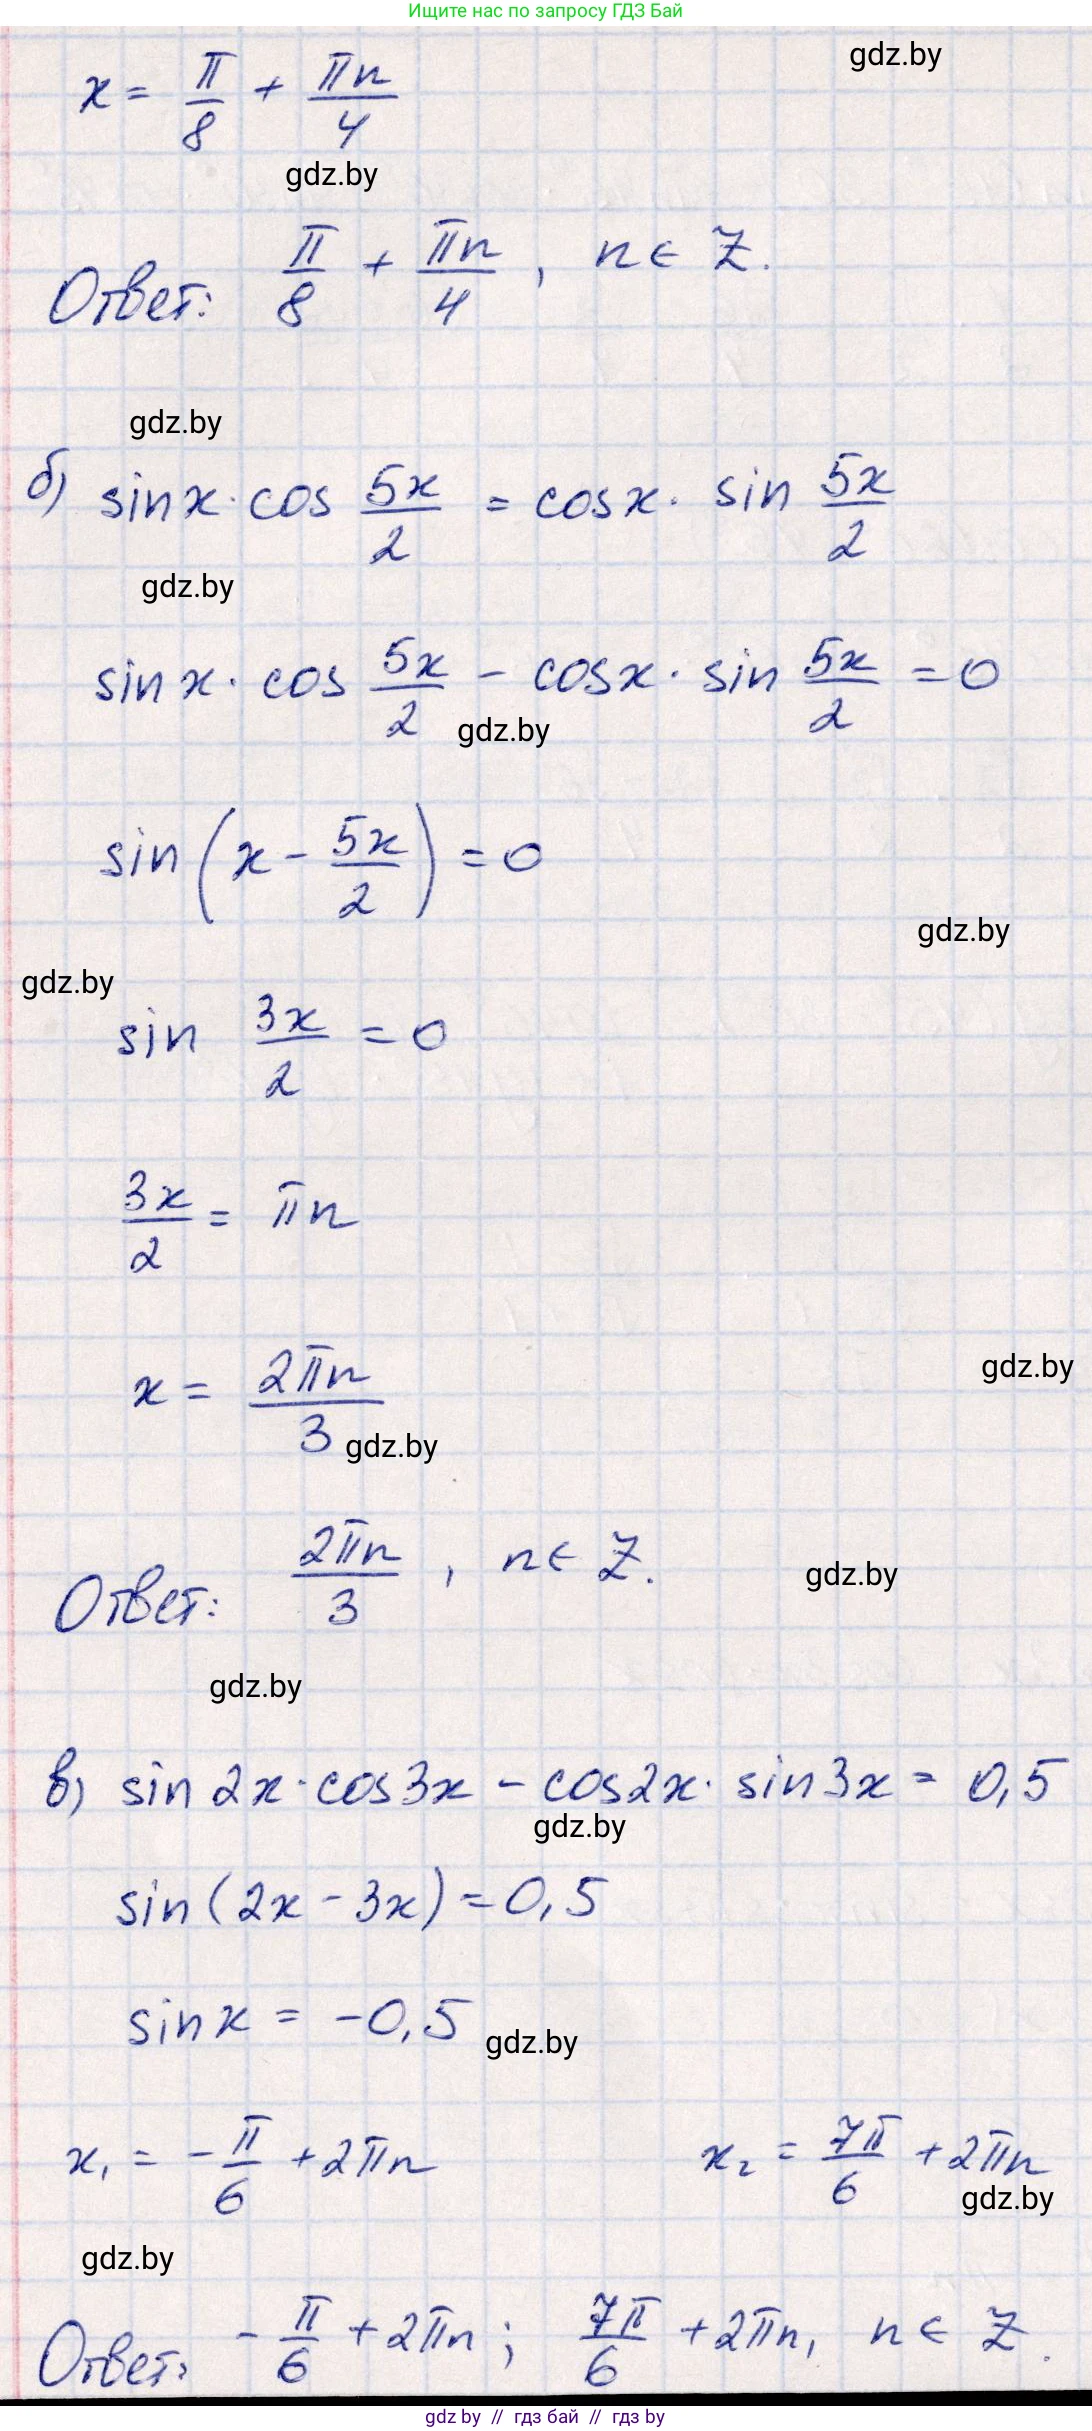 Ищите нас по запросу ГДЗ Бай
gdz.by
x = π/8 + πn/4
gdz.by
Ответ: π/8 + πn/4, n ∈ Z.
gdz.by
б) sin x · cos 5x/2 = cos x · sin 5x/2
gdz.by
sin x · cos 5x/2 - cos x · sin 5x/2 = 0
gdz.by
sin(x - 5x/2) = 0
gdz.by
gdz.by
sin 3x/2 = 0
3x/2 = πn
gdz.by
x = 2πn/3
gdz.by
Ответ: 2πn/3, n ∈ Z.
gdz.by
gdz.by
в) sin 2x · cos 3x - cos 2x · sin 3x = 0,5
gdz.by
sin(2x - 3x) = 0,5
sin x = -0,5
gdz.by
x₁ = -π/6 + 2πn x₂ = 7π/6 + 2πn
gdz.by
gdz.by
Ответ: -π/6 + 2πn; 7π/6 + 2πn, n ∈ Z.
gdz by // гдз бай // gdz by